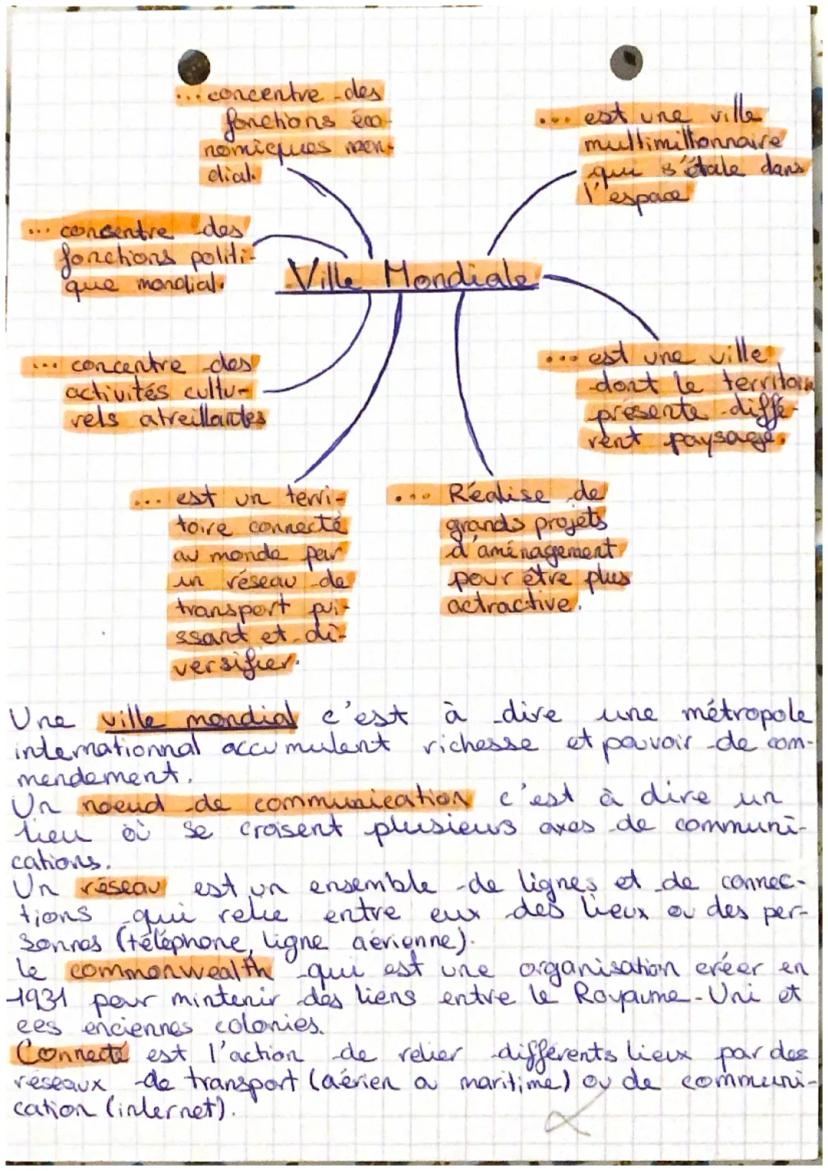 ... concentre des
fonctions éco-
nomiques mon-
dial.
... est une ville
multimillonnaire
qui s'étale dans
l'espace
... concentre des
fonctions politi-
que mondial.
Ville Mondiale
... concentre des
activités cultu-
rels atreillantes
... est une ville
dont le territoire
présente diffé-
rent paysage.
... est un terri-
toire connecté
au monde par
un réseau de
transport pui-
ssant et di-
versifier.
... Réalise de
grands projets
d'aménagement
pour être plus
actractive.
Une ville mondial c'est à dire une métropole
internationnal accumulent richesse et pouvoir de com-
mendement.
Un noeud de communication c'est à dire un
lieu où se croisent plusieurs axes de communi-
cations.
Un réseau est un ensemble de lignes et de connec-
tions qui relie entre eux des lieux ou des per-
sonnes (téléphone, ligne aérienne).
Le commonwealth qui est une organisation créer en
1931 pour mintenir des liens entre le Royaume-Uni et
ces enciennes colonies.
Connecté est l'action de relier différents lieux par des
réseaux de transport (aérien ou maritime) ou de communi-
cation (internet).